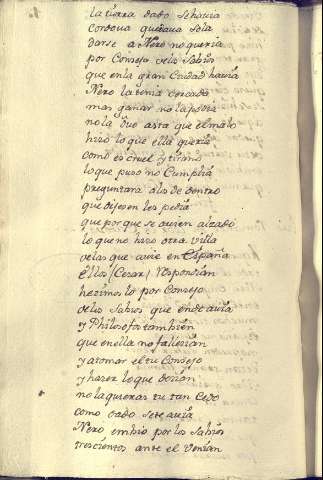 la tierra dado se havia
Cordova quedava sola
darse a Nero no queria
por Consejo de los Sabios
que en la gran Ciudad havia
Nero la tenia cercada
mas ganar no la podia
no la dio asta que el malo
hizo lo que ella queria
como es cruel y tirano
lo que puso no Cumplia
preguntara a los de dentro
que dijesen les pedia
que porque se avien alzado
lo que no hizo otra villa
de las que avie en España
Ellos (Cesar) respondian
hezimos lo por Consejo
de los Sabios que ende avia
y Philosofos tambien
que en ella no falierian
y a tomar el tu Consejo
y hazer lo que dezian
no la quieras tu tan Cedo
como dado se te avia
Nero embio por los Sabios
trescientos ante el venian